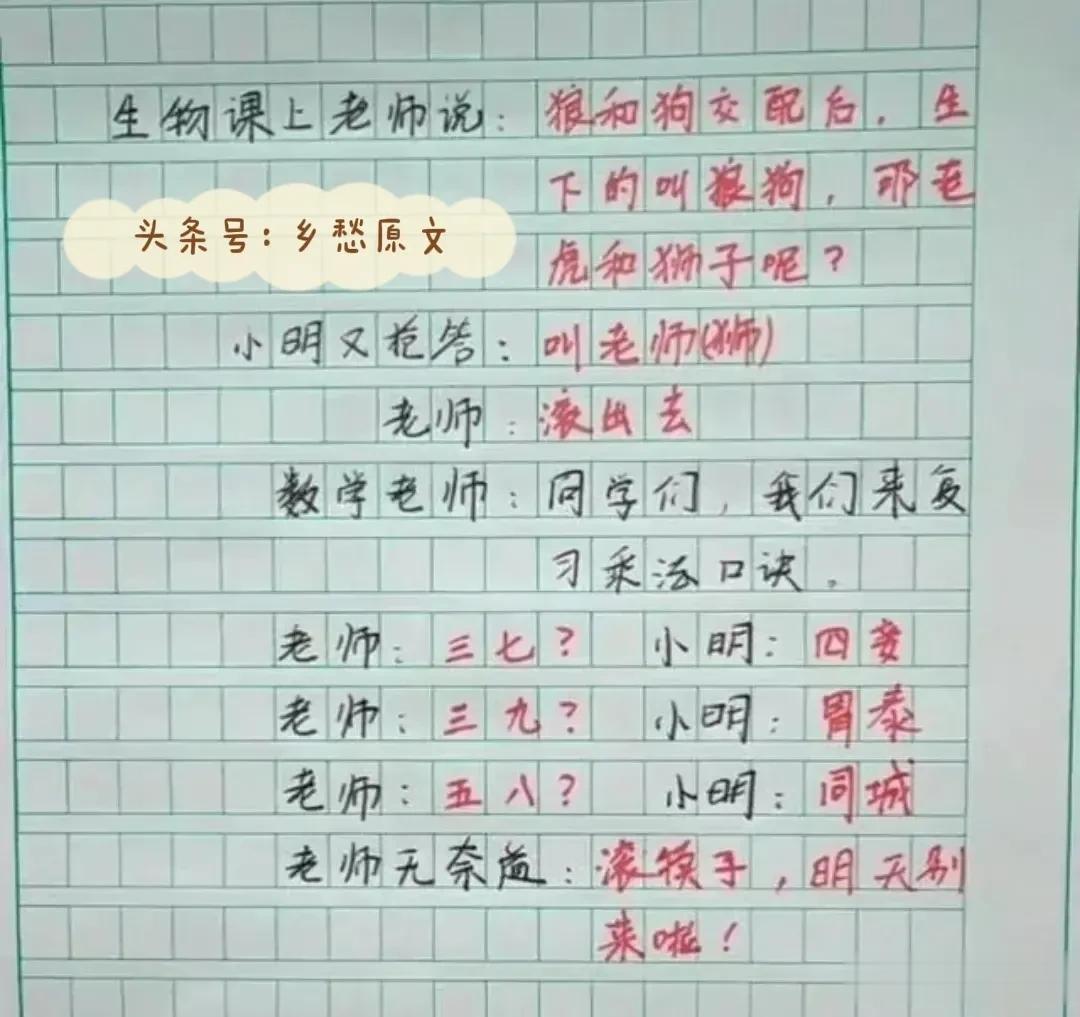 生物课上老师说：狼和狗交配后，生
下的叫狼狗，那老
头条号：乡愁原文
虎和狮子呢？
小明又抢答：叫老师(狮)
老师：滚出去
数学老师：同学们，我们来复
习乘法口诀。
老师：三七？ 小明：四妾
老师：三九？ 小明：胃泰
老师：五八？ 小明：同城
老师无奈道：滚筷子，明天别
来啦！